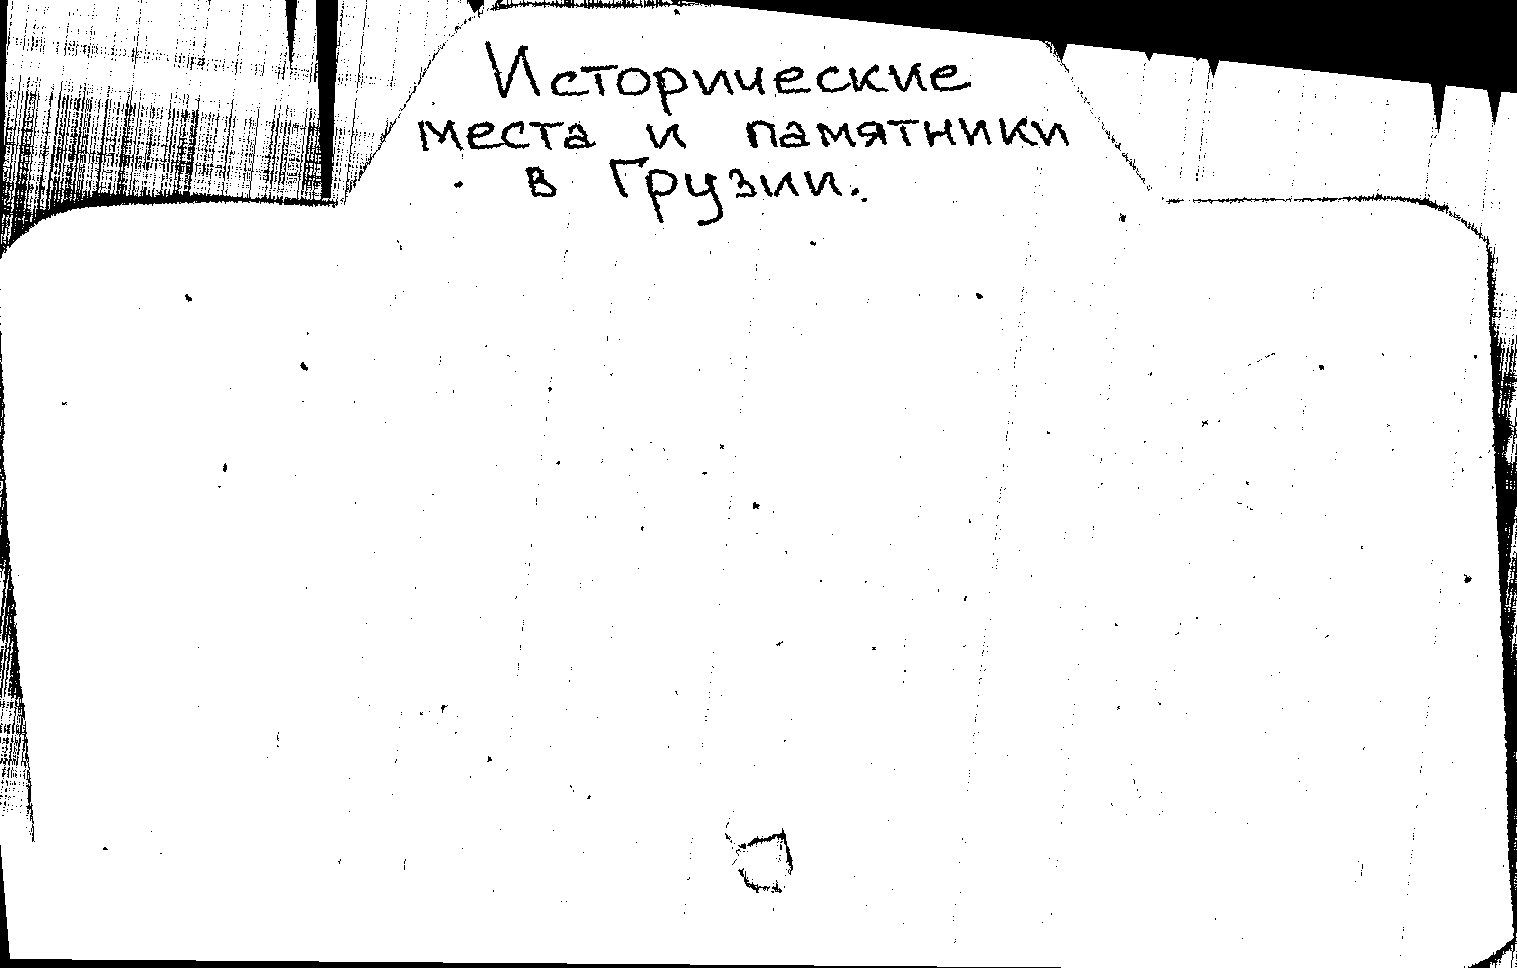 Исторические
места и памятники
в Грузии.